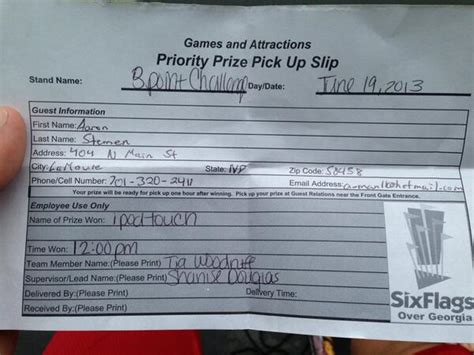 Games and Attractions
Priority Prize Pick Up Slip
Stand Name: 3 point Challeng Day/Date: June 19, 2013
Guest Information
First Name: Aaron
Last Name: Stemen
Address: 404 N Main St
City: LaMoure State: ND Zip Code: 58458
Phone/Cell Number: 701-320-2411 Email Address:
Your prize will be ready for pick up one hour after winning. Pick up your prize at Guest Relations near the Front Gate Entrance.
Employee Use Only
Name of Prize Won: ipod touch
Time Won: 12:00pm
Team Member Name:(Please Print) Tia
Supervisor/Lead Name:(Please Print) Shanise Douglas
Delivered By:(Please Print) Delivery Time:
Received By:(Please Print)
SixFlags
Over Georgia